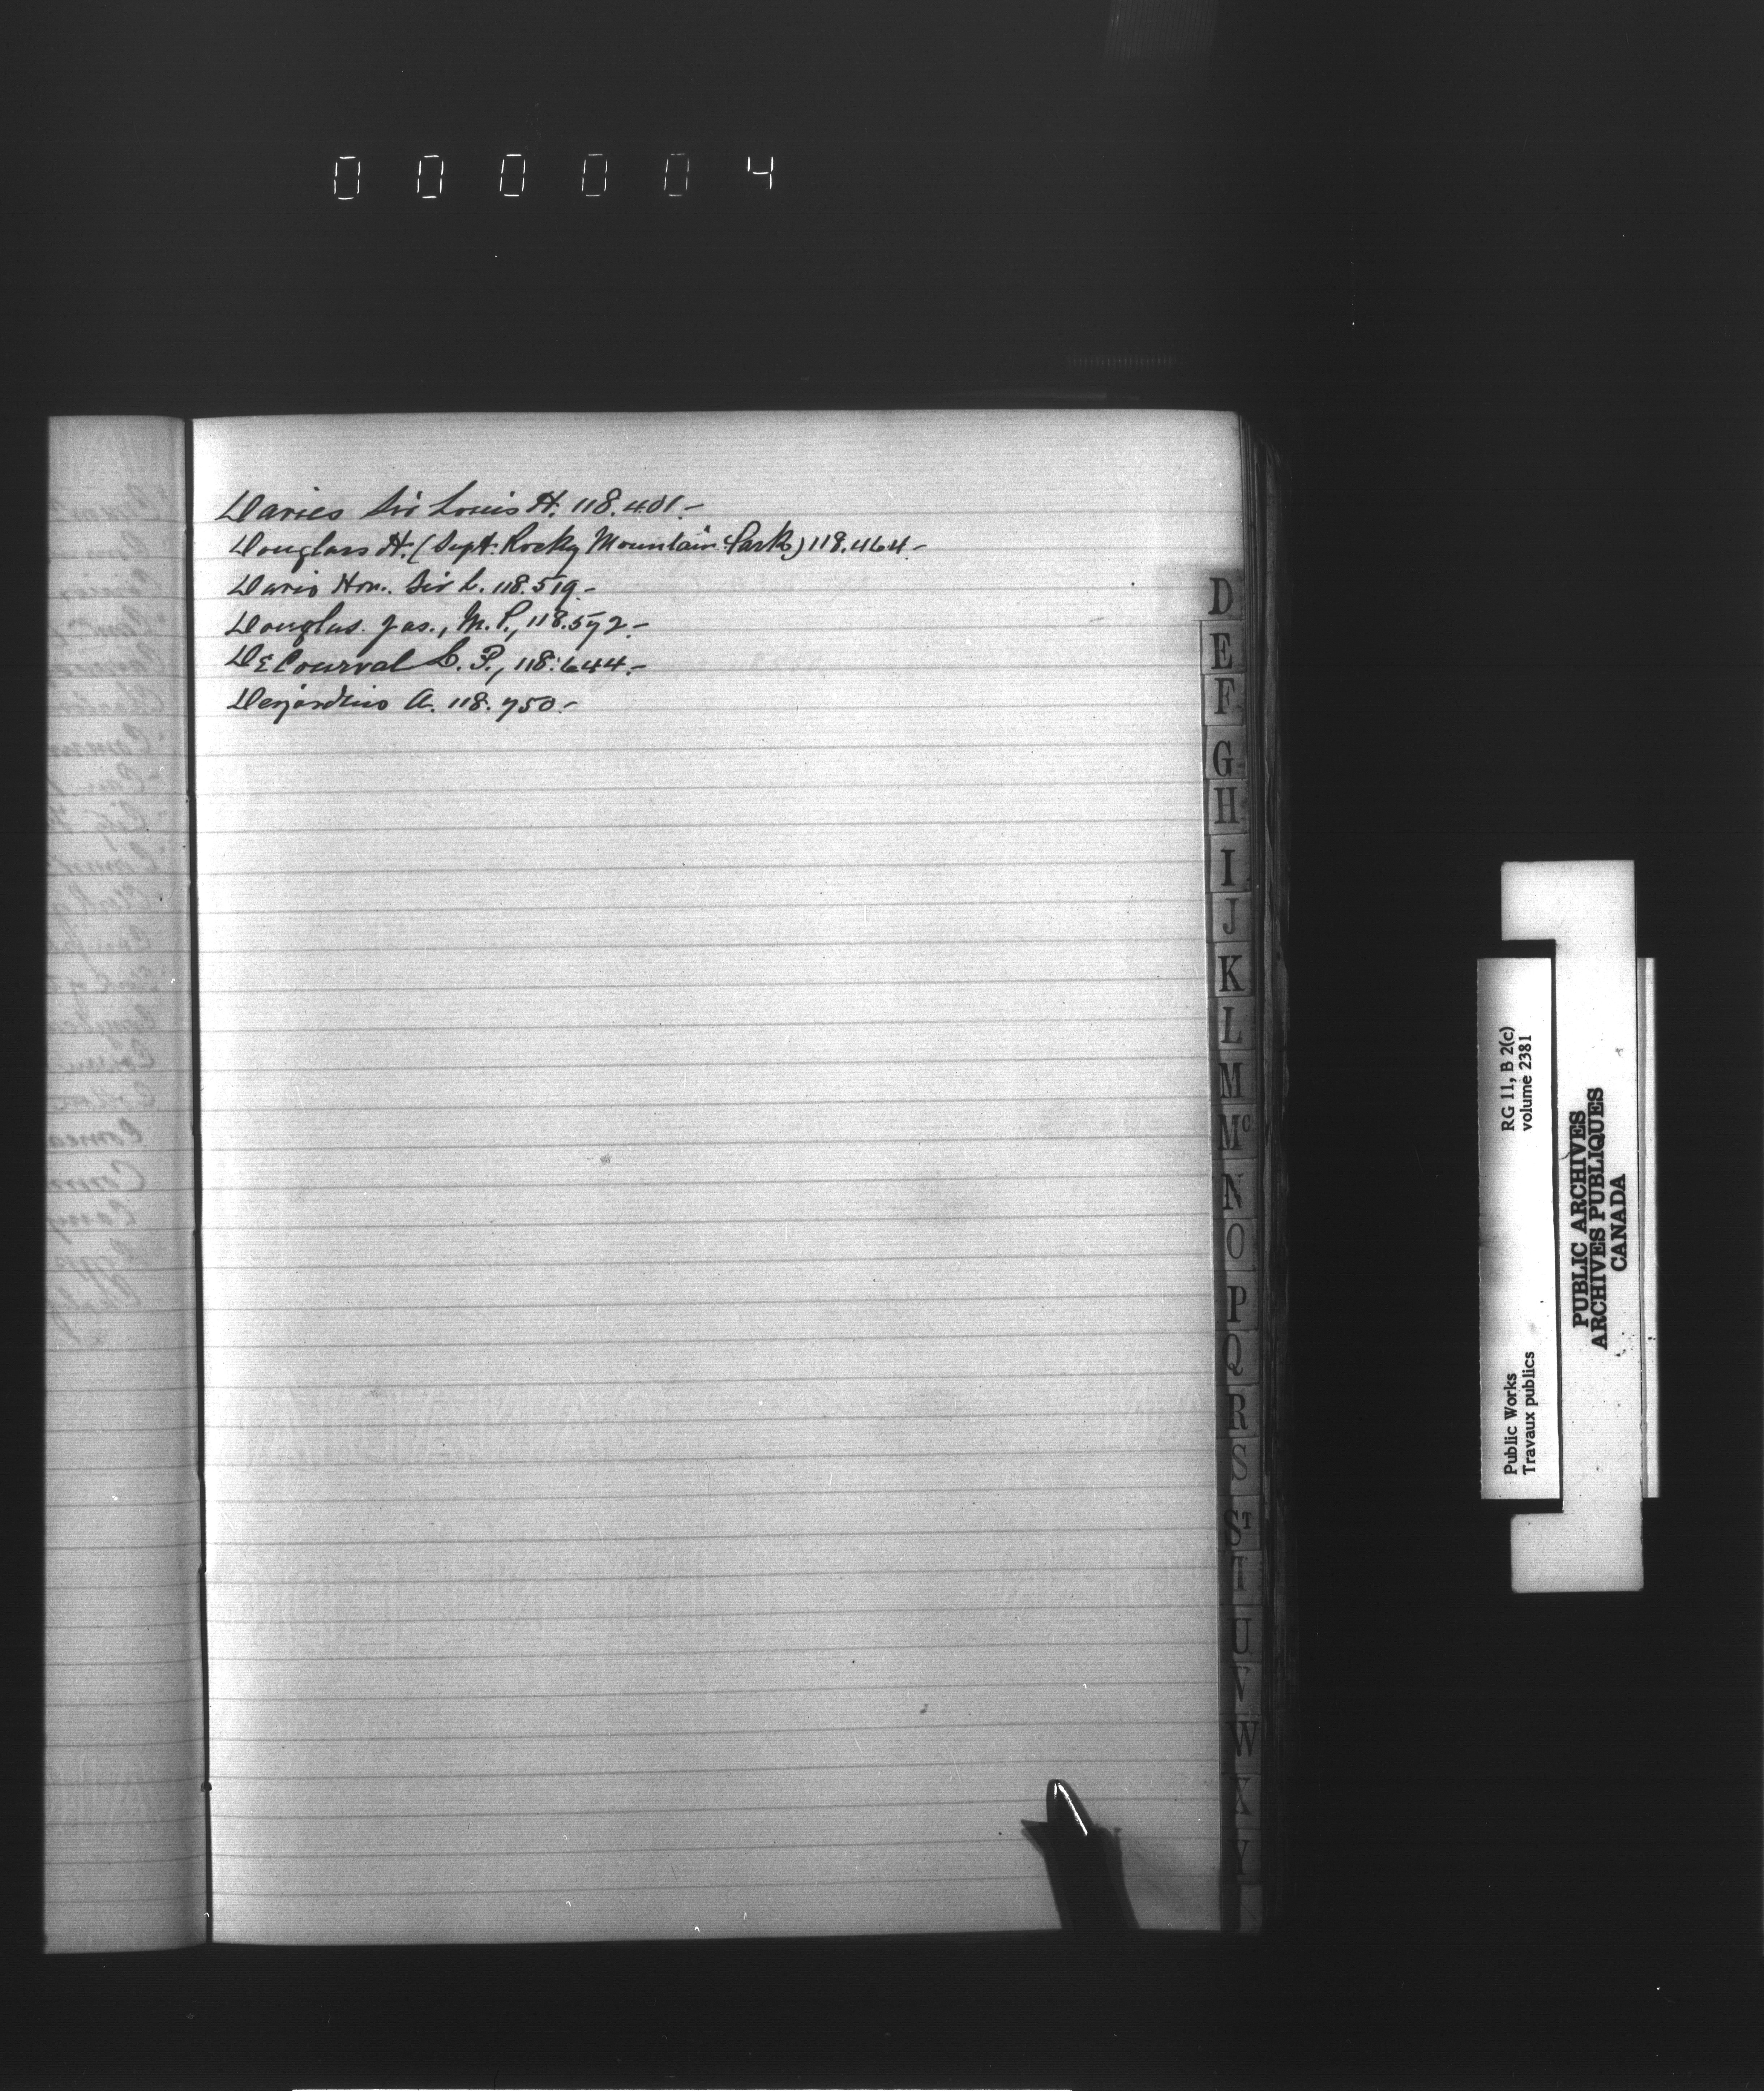 000004
Davies Sir Louis H. 118.401.-
Douglas H. (Supt. Rocky Mountain Park) 118.464.-
Davis Hon. Sir L. 118.519.-
Douglas. Jas., M.P., 118.572.-
DeCourval L. P., 118.644.-
Desjardins A. 118.750.-
D
E
F
G
H
I
J
K
L
M
Mc
N
O
P
Q
R
S
ST
T
U
V
W
X
Y
Public Works RG 11, B 2(c)
Travaux publics volume 2381
PUBLIC ARCHIVES
ARCHIVES PUBLIQUES
CANADA